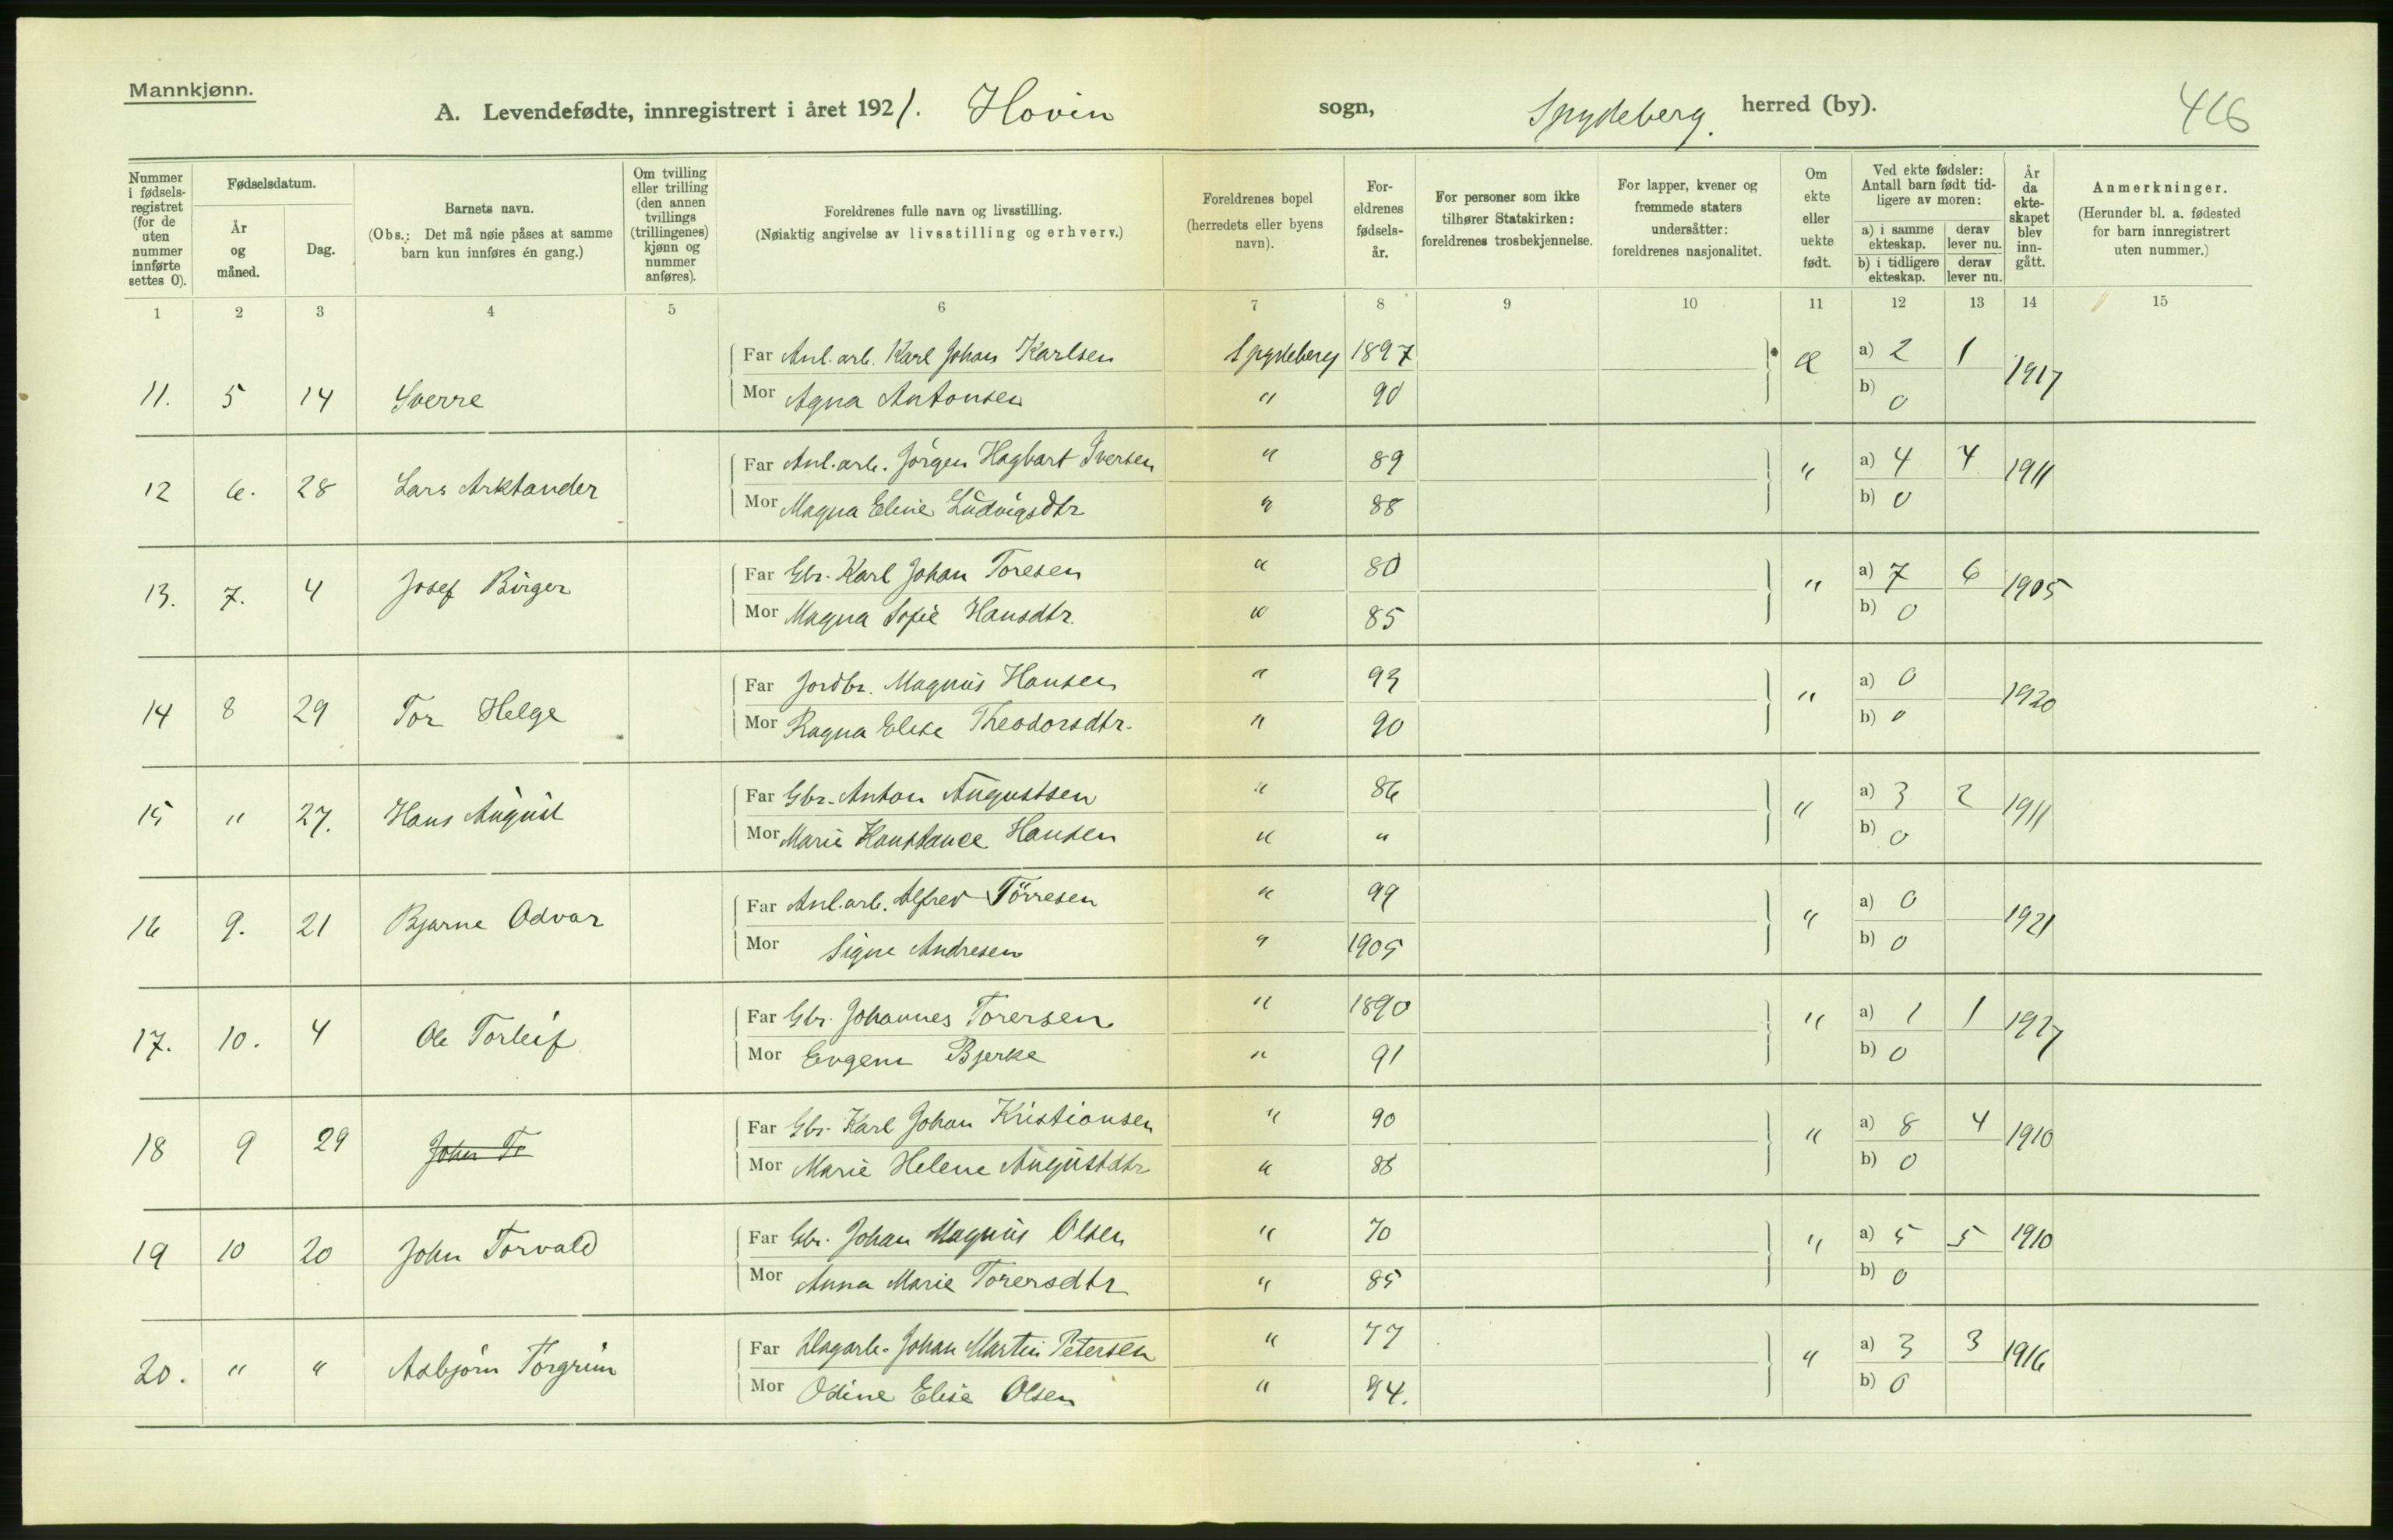 Mannkjønn.
A. Levendefødte, innregistrert i året 1921. Hovin sogn, Spydeberg. herred (by).
416
Nummer i fødsels-registret (for de uten nummer innførte settes 0).
Fødselsdatum.
År og måned.
Dag.
Barnets navn.
(Obs.: Det må nøie påses at samme barn kun innføres én gang.)
Om tvilling eller trilling (den annen tvillings (trillingenes) kjønn og nummer anføres).
Foreldrenes fulle navn og livsstilling.
(Nøiaktig angivelse av livsstilling og erhverv.)
Foreldrenes bopel (herredets eller byens navn).
For-eldrenes fødsels-år.
For personer som ikke tilhører Statskirken: foreldrenes trosbekjennelse.
For lapper, kvener og fremmede staters undersåtter: foreldrenes nasjonalitet.
Om ekte eller uekte født.
Ved ekte fødsler: Antall barn født tid-ligere av moren:
a) i samme ekteskap. derav lever nu.
b) i tidligere ekteskap. derav lever nu.
År da ekte-skapet blev inn-gått.
Anmerkninger.
(Herunder bl. a. fødested for barn innregistrert uten nummer.)
1 2 3 4 5 6 7 8 9 10 11 12 13 14 15
Far Anl. arb. Karl Johan Karlsen Spydeberg 1897 Æ a) 2 1 1917
11. 5 14 Sverre
Mor Agna Antonsen " 90 b) 0
Far Anl. arb. Jörgen Hagbart Iversen " 89 " a) 4 4 1911
12 6. 28 Lars Arktander
Mor Magna Eline Ludvigsdtr " 88 b) 0
Far Gbr. Karl Johan Toresen " 80 " a) 7 6 1905
13. 7. 4 Josef Birger
Mor Magna Sofie Hansdtr. " 85 b) 0
Far Jordbr. Magnus Hansen " 93 " a) 0 1920
14 8 29 Tor Helge
Mor Ragna Elise Theodorsdtr. " 90 b) 0
Far Gbr. Anton Augustsen " 86 " a) 3 2 1911
15 " 27. Hans August
Mor Marie Konstance Hansen " " b) 0
Far Anl. arb. Alfred Törresen " 99 " a) 0 1921
16 9. 21 Bjarne Odvar
Mor Signe Andresen " 1905 b) 0
Far Gbr. Johannes Torersen " 1890 " a) 1 1
17. 10. 4 Ole Torleif
Mor Evgeni Bjerke " 91 b) 0
Far Gbr. Karl Johan Kristiansen " 90 " a) 8 4 1910
18 9 29 John To
Mor Marie Helene Augustdtr " 88 b) 0
Far Gbr. Johan Magnus Olsen " 70 " a) 5 5 1910
19 10 20 John Torvald
Mor Anna Marie Torersdtr " 85 b) 0
Far Dagarb. Johan Martin Petersen " 77 " a) 3 3 1916
20. " " Asbjörn Torgrim
Mor Odine Elise Olsen " 94. b) 0